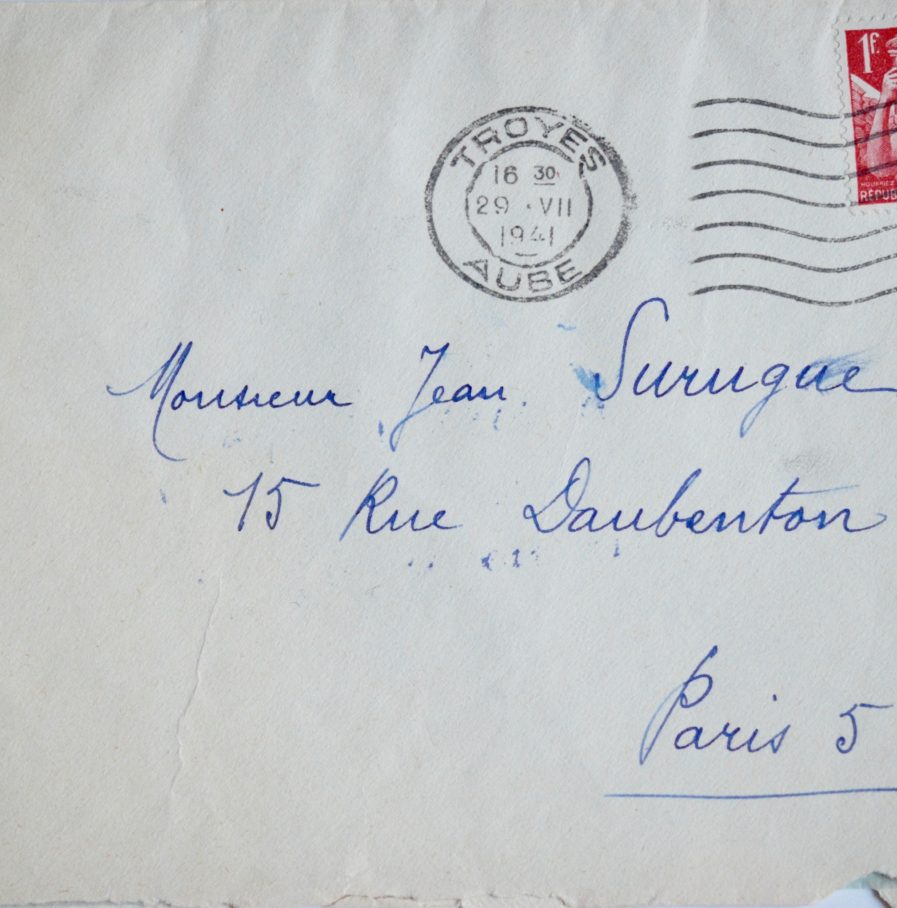 1f.
TROYES
16 30
29 · VII
1941
AUBE
RÉPUB
Monsieur Jean Surugue
15 Rue Daubenton
Paris 5